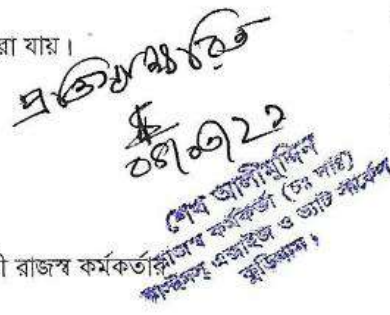 রা যায়।
প্রতিস্বাক্ষরিত
শেখ আলীমুদ্দিন
রাজস্ব কর্মকর্তা (চঃ দাঃ)
কাস্টমস, এক্সাইজ ও ভ্যাট সার্কেল
কুড়িগ্রাম।
ী রাজস্ব কর্মকর্তার